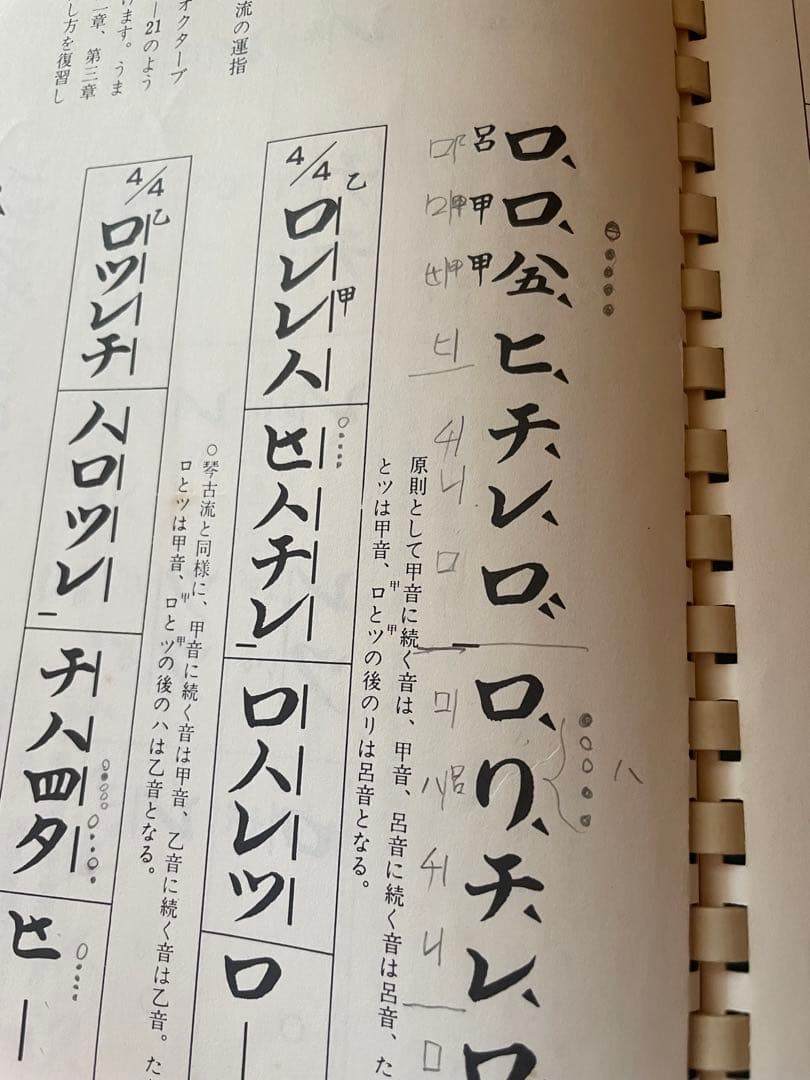 呂ロ、
甲ロ、
甲仝五、
ヒ、
チ、
レ、
ロ、
ロ、
リ、
チ、
レ、
ロ
ハ
ロ呂
ロ甲
甲
ヒ
チ
レ
ロ
ロ
ハ呂
チ
レ
ロ
原則として甲音に続く音は、甲音、呂音に続く音は呂音、た
とツは甲音、ロとツの後のリは呂音となる。
甲
甲
4/4
乙
ロレレハ
甲
ヒハチレ
ロハレツ
ロ
○琴古流と同様に、甲音に続く音は甲音、乙音に続く音は乙音。た
ロとツは甲音、ロとツの後のハは乙音となる。
甲
甲
4/4
乙
ロツレチ
ハロツレ
チハ四タ
ヒ
流の運指
オクターブ
―21のよう
けます。うま
一章、第三章
し方を復習し